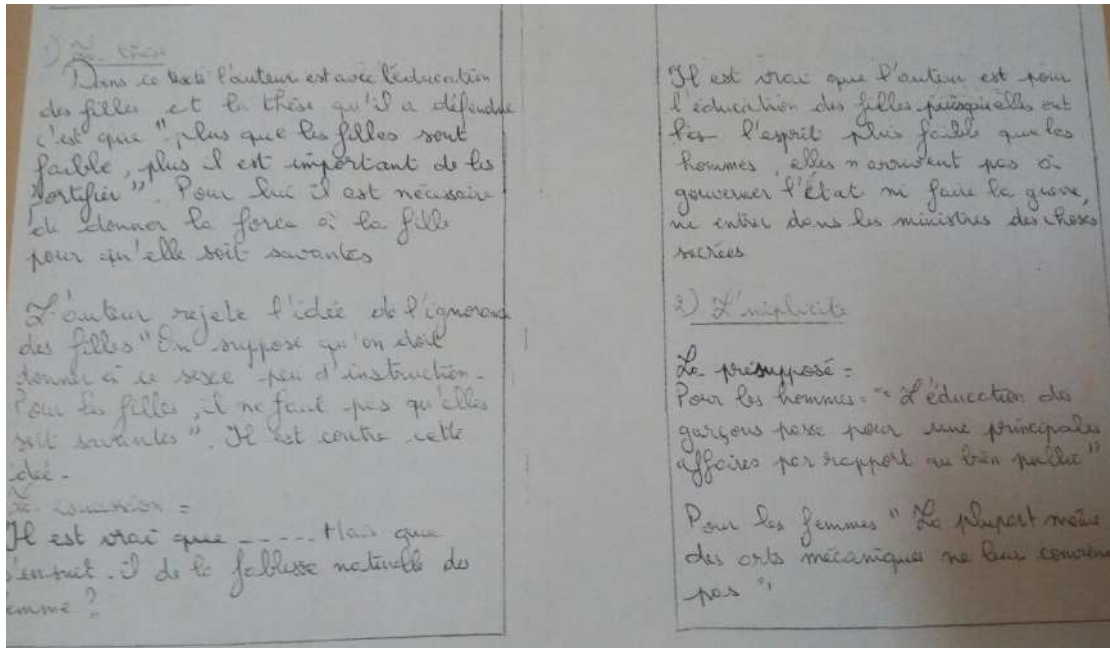 1) La thèse
Dans ce texte l'auteur est avec l'éducation
des filles et la thèse qu'il a défendue
c'est que "plus que les filles sont
faible, plus il est important de les
fortifier". Pour lui il est nécessaire
de donner la force à la fille
pour qu'elle soit savantes
L'auteur rejete l'idée de l'ignorance
des filles "On suppose qu'on doit
donner à ce sexe peu d'instruction.
Pour les filles, il ne faut pas qu'elles
soit savantes". Il est contre cette
idée.
La concession =
Il est vrai que ----- Mais que
s'ensuit-il de la faiblesse naturelle des
femme ?
Il est vrai que l'auteur est pour
l'éducation des filles puisqu'elles ont
l'esprit plus faible que les
hommes, elles n'arrivent pas à
gouverner l'État ni faire la guerre,
ni entrer dans les ministres des choses
sacrées
2) L'implicité
Le présupposé =
Pour les hommes = "L'éducation des
garçons passe pour une principales
affaires par rapport au bien public"
Pour les femmes "La plupart même
des arts mécaniques ne leur convienne
pas"